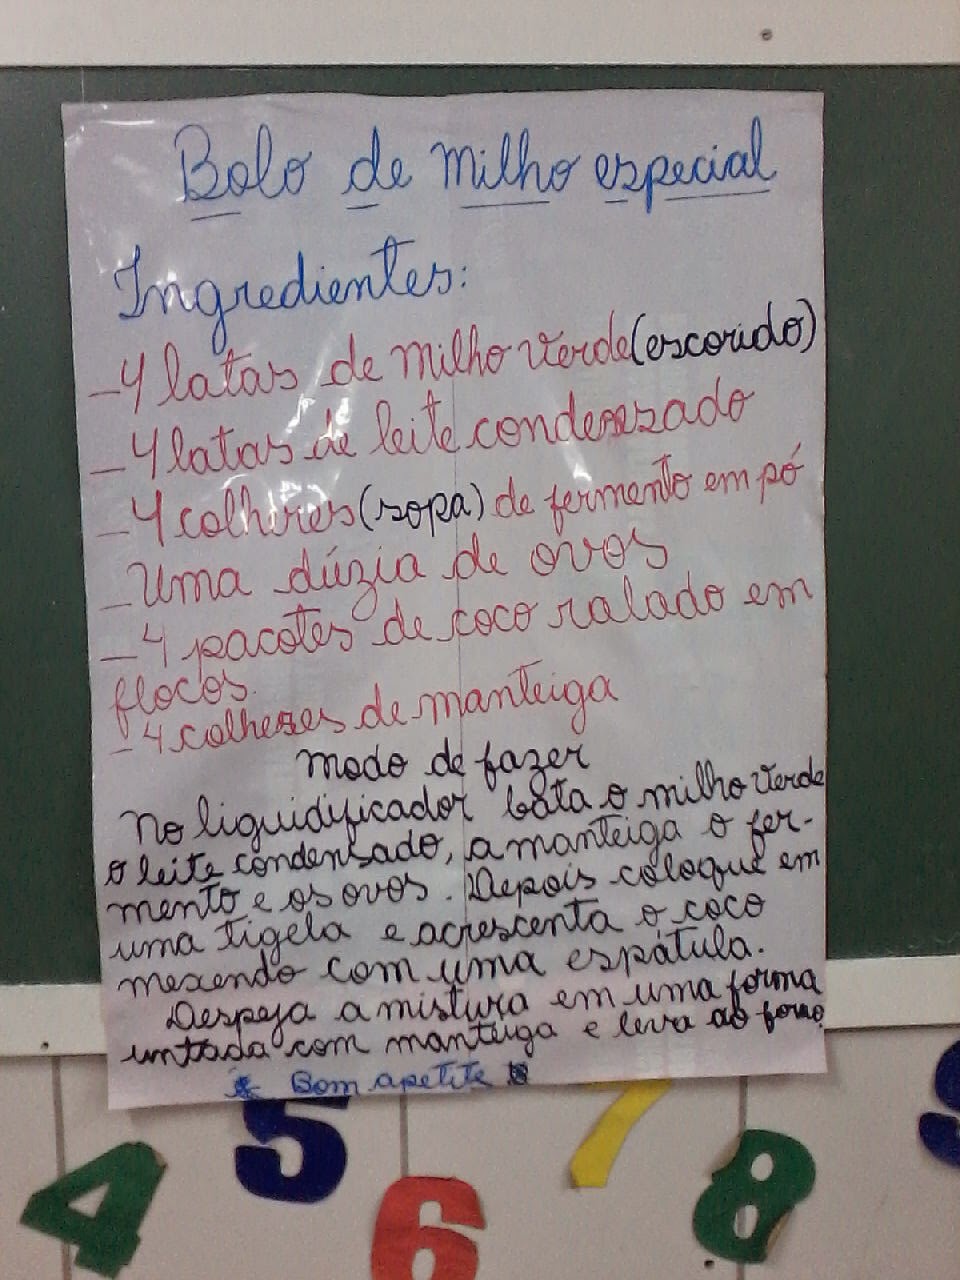 Bolo de milho especial
Ingredientes:
-4 latas de milho verde (escorido)
-4 latas de leite condensado
-4 colheres (sopa) de fermento em pó
-Uma dúzia de ovos
-4 pacotes de coco ralado em
flocos.
-4 colheres de manteiga
modo de fazer
No liquidificador bata o milho verde
o leite condensado, a manteiga o fer-
mento e os ovos. Depois coloque em
uma tigela e acrescenta o coco
mexendo com uma espátula.
Despeja a mistura em uma forma
untada com manteiga e leva ao forno.
Bom apetite
4 5 6 7 8 9